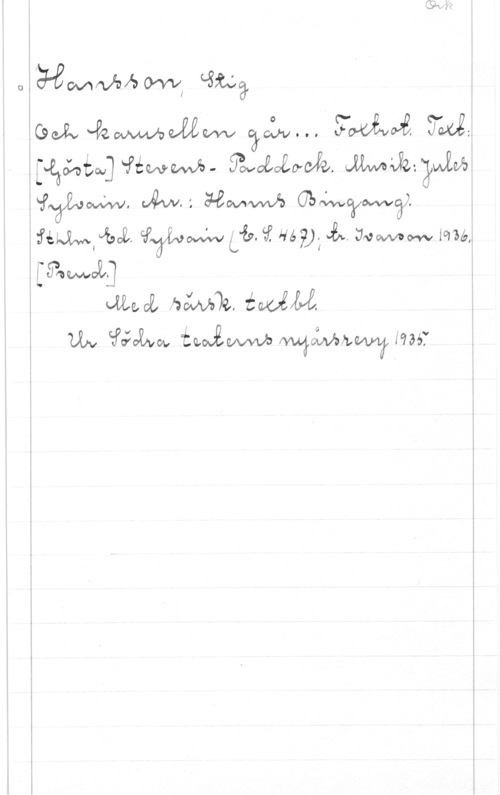 Ork
Hansson, Stig
Och karusellen går... Foxtrot. Text:
[Gösta] Stevens- Paddock. Musik: Jules
Sylvain. Arr.: Hanns Bingang.
Sthlm, Ed. Sylvain (E. S. 467); tr. Ivarson 1936.
[Pseud.]
Med särsk. textbl.
Ur Södra teaterns nyårsrevy 1935.